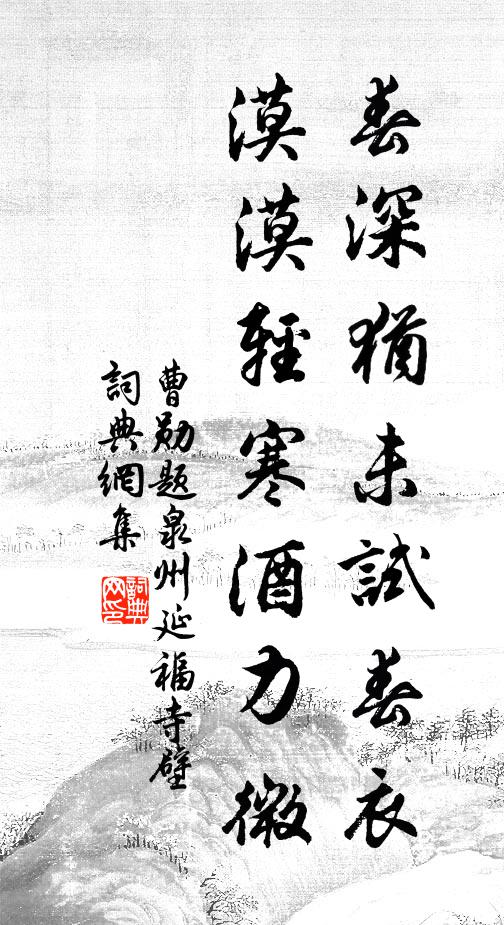 春深猶未試春衣
漠漠輕寒酒力微
曹勛題泉州延福寺壁
詞典網集
詞典网印